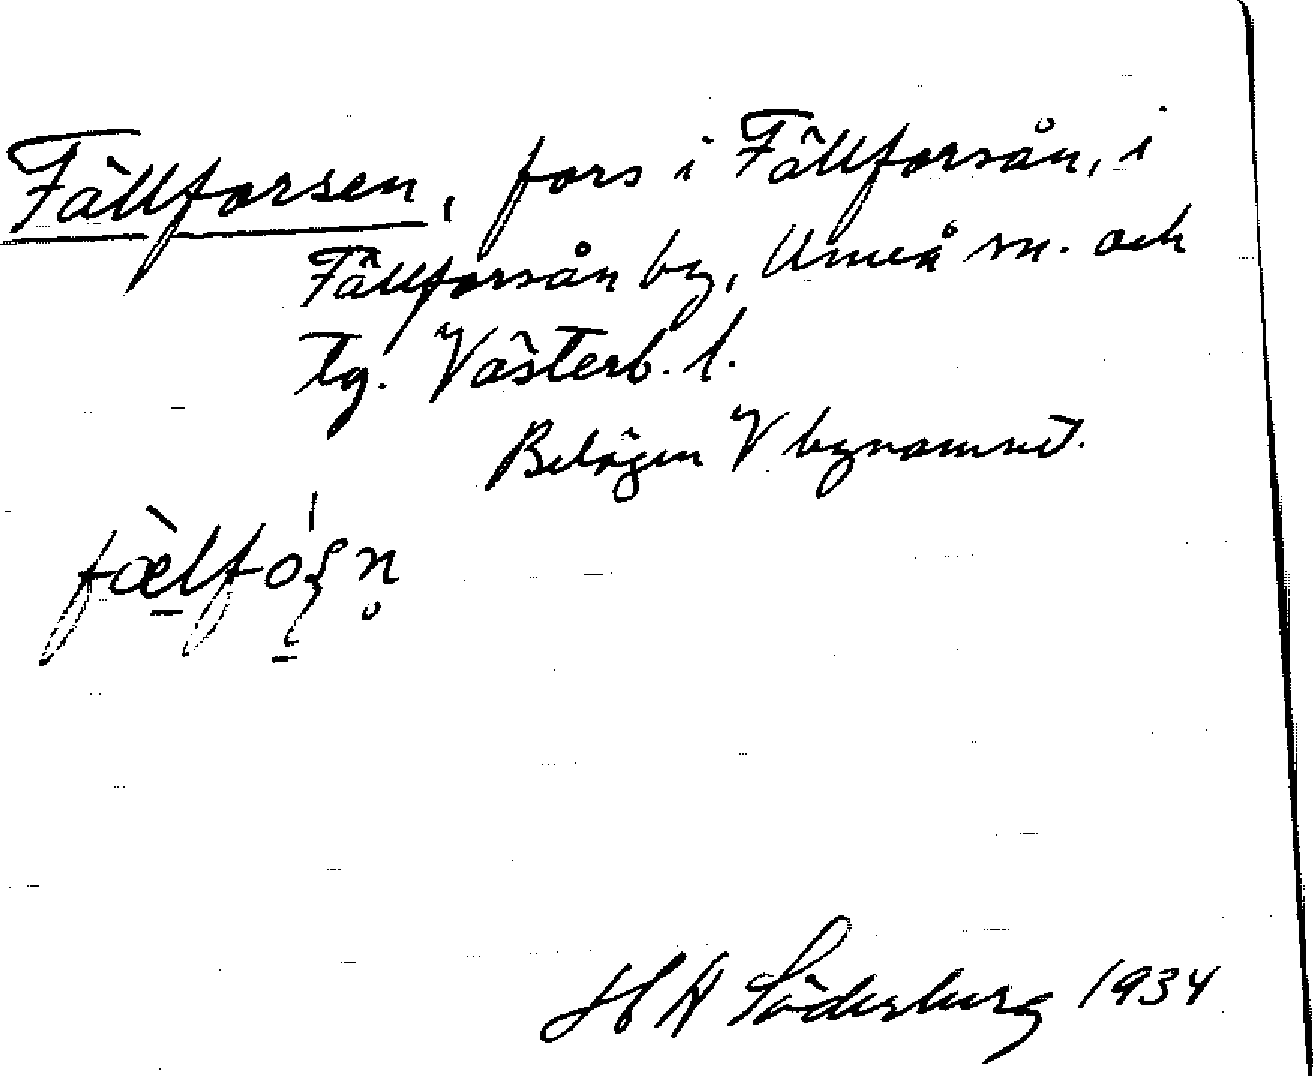 Fällforsen, fors i Fällforsån, i
Fällforsån by, Umeå sn. och
tg. Västerb. l.
Belägen V bynamnet.
H A Söderberg 1934